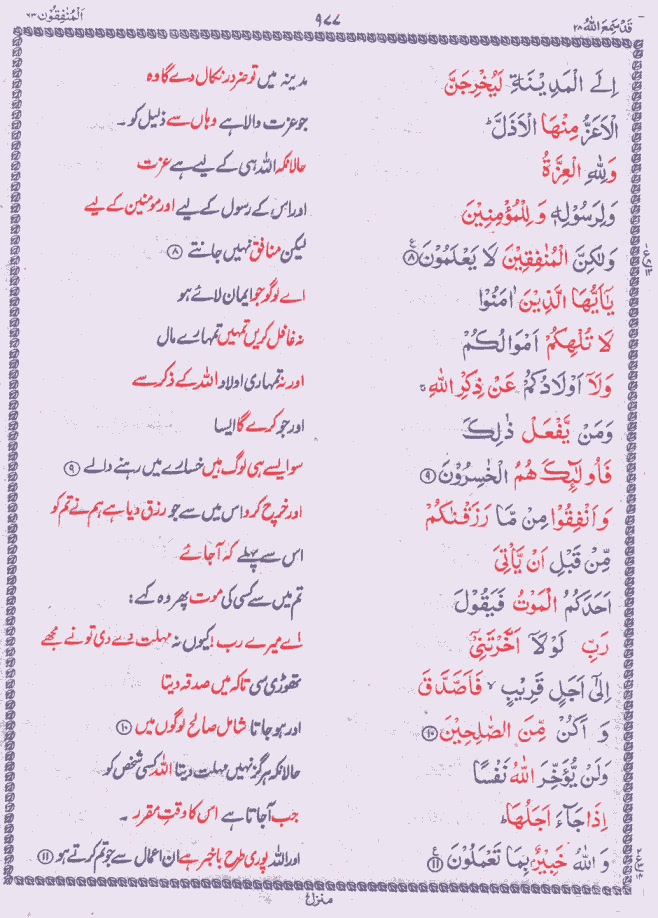 قَدْ سَمِعَ اللّٰهُ ۲۸
۹۷۷
اَلْمُنٰفِقُوْن ۶۳
اِلَى الْمَدِيْنَةِ لَيُخْرِجَنَّ
مدینہ میں تو ضرور نکال دے گا وہ
الْاَعَزُّ مِنْهَا الْاَذَلَّ ؕ
جو عزت والا ہے وہاں سے ذلیل کو ۔
وَلِلّٰهِ الْعِزَّةُ
حالانکہ اللہ ہی کے لیے ہے عزت
وَلِرَسُوْلِهٖ وَلِلْمُؤْمِنِيْنَ
اور اس کے رسول کے لیے اور مومنین کے لیے
وَلٰكِنَّ الْمُنٰفِقِيْنَ لَا يَعْلَمُوْنَ ﴿۸﴾
لیکن منافق نہیں جانتے ﴿۸﴾
يٰۤاَيُّهَا الَّذِيْنَ اٰمَنُوْا
اے لوگو جو ایمان لائے ہو
لَا تُلْهِكُمْ اَمْوَالُكُمْ
نہ غافل کریں تمہیں تمہارے مال
وَلَاۤ اَوْلَادُكُمْ عَنْ ذِكْرِ اللّٰهِ ۚ
اور نہ تمہاری اولاد اللہ کے ذکر سے
وَمَنْ يَّفْعَلْ ذٰلِكَ
اور جو کرے گا ایسا
فَاُولٰٓئِكَ هُمُ الْخٰسِرُوْنَ ﴿۹﴾
سو ایسے ہی لوگ ہیں خسارے میں رہنے والے ﴿۹﴾
وَاَنْفِقُوْا مِنْ مَّا رَزَقْنٰكُمْ
اور خرچ کرو اس میں سے جو رزق دیا ہے ہم نے تم کو
مِّنْ قَبْلِ اَنْ يَّاْتِيَ
اس سے پہلے کہ آجائے
اَحَدَكُمُ الْمَوْتُ فَيَقُوْلَ
تم میں سے کسی کی موت پھر وہ کہے :
رَبِّ لَوْلَاۤ اَخَّرْتَنِيْۤ
اے میرے رب ! کیوں نہ مہلت دے دی تو نے مجھے
اِلٰۤى اَجَلٍ قَرِيْبٍ ۙ فَاَصَّدَّقَ
تھوڑی سی تاکہ میں صدقہ دیتا
وَ اَكُنْ مِّنَ الصّٰلِحِيْنَ ﴿۱۰﴾
اور ہو جاتا شامل صالح لوگوں میں ﴿۱۰﴾
وَلَنْ يُّؤَخِّرَ اللّٰهُ نَفْسًا
حالانکہ ہرگز نہیں مہلت دیتا اللہ کسی شخص کو
اِذَا جَآءَ اَجَلُهَا ؕ
جب آجاتا ہے اس کا وقتِ مقرر ۔
وَ اللّٰهُ خَبِيْرٌۢ بِمَا تَعْمَلُوْنَ ﴿۱۱﴾
اور اللہ پوری طرح باخبر ہے ان اعمال سے جو تم کرتے ہو ﴿۱۱﴾
منزل